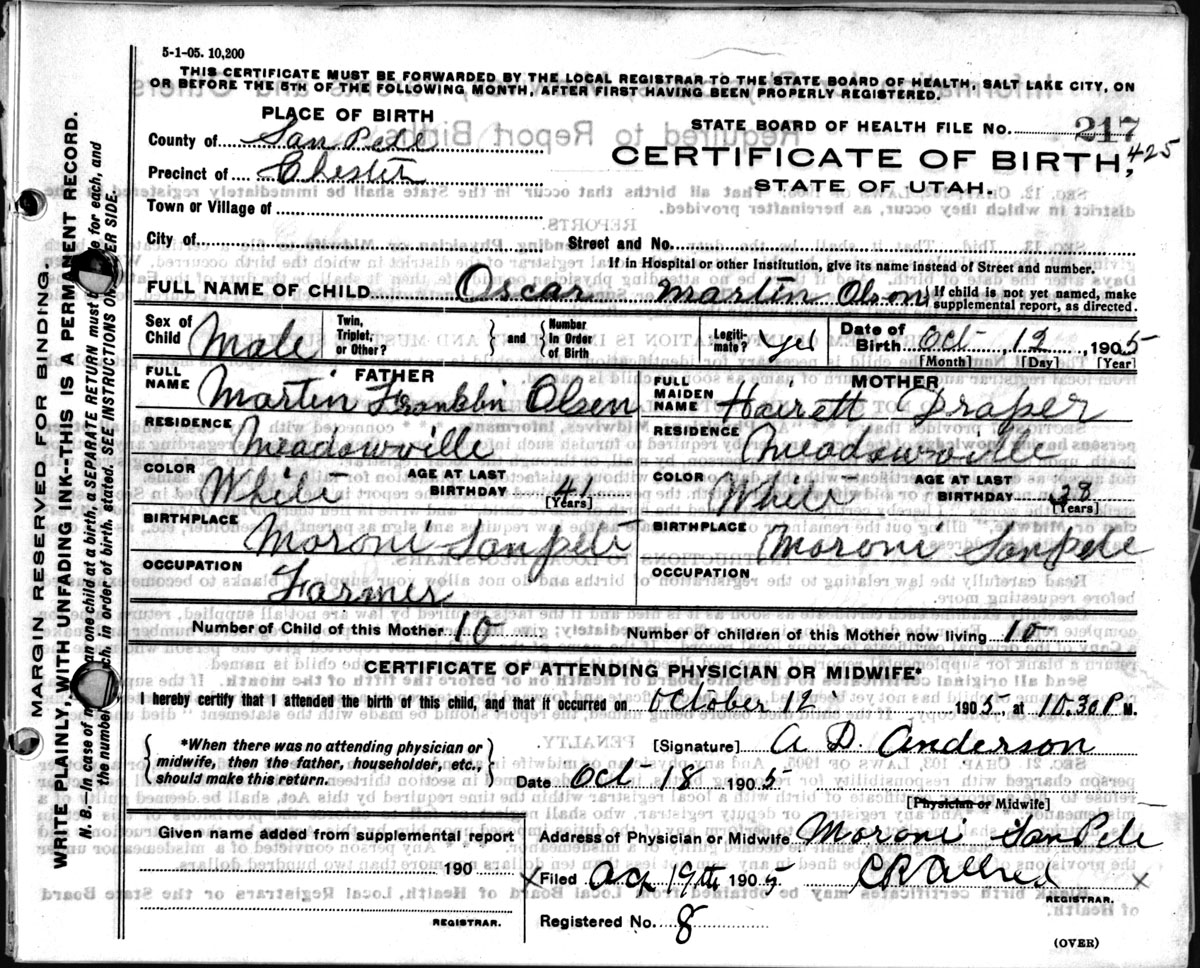 5-1-05. 10,200
THIS CERTIFICATE MUST BE FORWARDED BY THE LOCAL REGISTRAR TO THE STATE BOARD OF HEALTH, SALT LAKE CITY, ON
OR BEFORE THE 5TH OF THE FOLLOWING MONTH, AFTER FIRST HAVING BEEN PROPERLY REGISTERED.
PLACE OF BIRTH
County of San Pete
Precinct of Chester
Town or Village of
City of
STATE BOARD OF HEALTH FILE NO. 217
425
CERTIFICATE OF BIRTH,
STATE OF UTAH.
Street and No.
If in Hospital or other Institution, give its name instead of Street and number.
FULL NAME OF CHILD Oscar Martin Olson
If child is not yet named, make
supplemental report, as directed.
Sex of Child Male
Twin, Triplet, or Other?
and
Number in Order of Birth
Legiti-mate? yes
Date of Birth Oct, 12, 1905
[Month] [Day] [Year]
FATHER
FULL NAME Martin Franklin Olsen
RESIDENCE Meadowville
COLOR White
AGE AT LAST BIRTHDAY 41
[Years]
BIRTHPLACE Moroni Sanpete
OCCUPATION Farmer
MOTHER
FULL MAIDEN NAME Hairett Draper
RESIDENCE Meadowville
COLOR White
AGE AT LAST BIRTHDAY 38
[Years]
BIRTHPLACE Moroni Sanpete
OCCUPATION
Number of Child of this Mother 10
Number of children of this Mother now living 10
CERTIFICATE OF ATTENDING PHYSICIAN OR MIDWIFE*
I hereby certify that I attended the birth of this child, and that it occurred on October 12 1905, at 10.30 P M.
*When there was no attending physician or
midwife, then the father, householder, etc.,
should make this return.
[Signature] A D. Anderson
Date Oct 18 1905
[Physician or Midwife]
Given name added from supplemental report
190
REGISTRAR.
Address of Physician or Midwife Moroni San Pete
X Filed 19th 1905 C R Allred X
REGISTRAR.
Registered No. 8
(OVER)
MARGIN RESERVED FOR BINDING.
WRITE PLAINLY, WITH UNFADING INK--THIS IS A PERMANENT RECORD.
N. B.--In case of more than one child at a birth, a SEPARATE RETURN must be made for each, and
the number of each, in order of birth, stated. SEE INSTRUCTIONS ON OTHER SIDE.